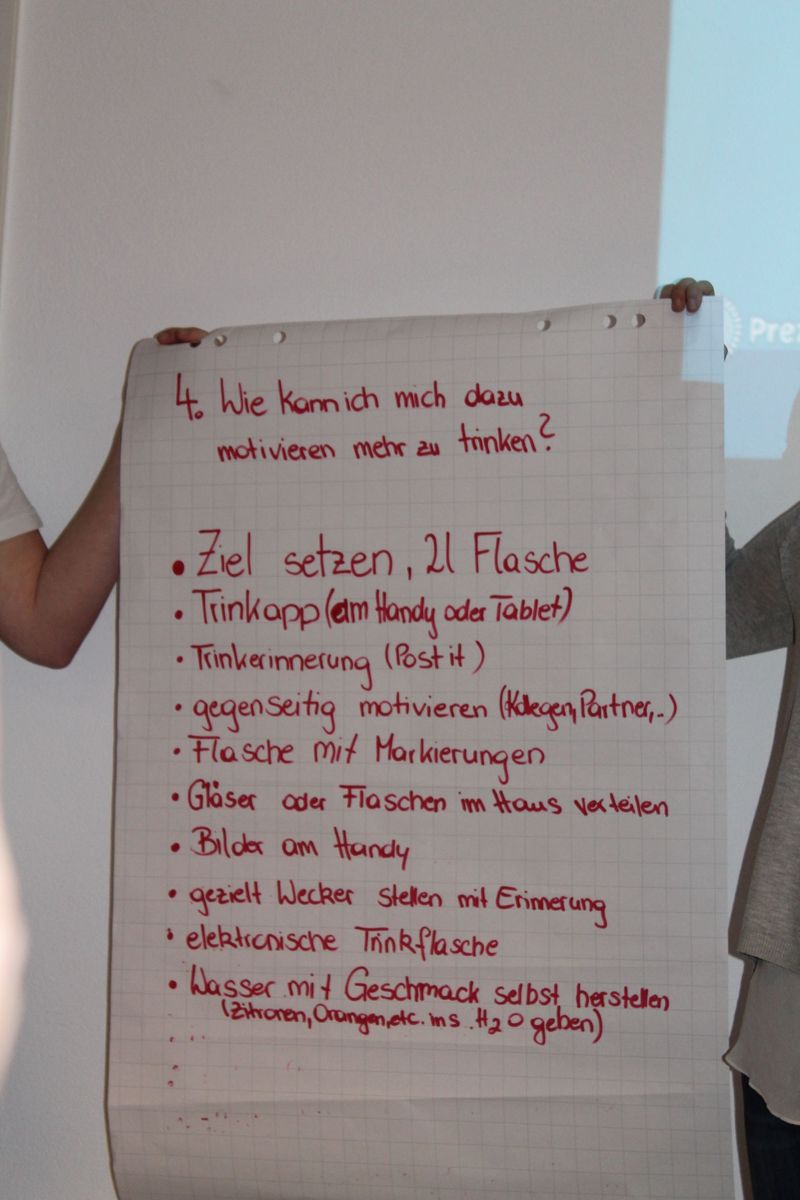 4. Wie kann ich mich dazu
motivieren mehr zu trinken?
• Ziel setzen, 2l Flasche
• Trinkapp (am Handy oder Tablet)
• Trinkerinnerung (Post it)
• gegenseitig motivieren (Kollegen, Partner,..)
• Flasche mit Markierungen
• Gläser oder Flaschen im Haus verteilen
• Bilder am Handy
• gezielt Wecker stellen mit Erinnerung
• elektronische Trinkflasche
• Wasser mit Geschmack selbst herstellen
(Zitronen, Orangen, etc. ins H2O geben)